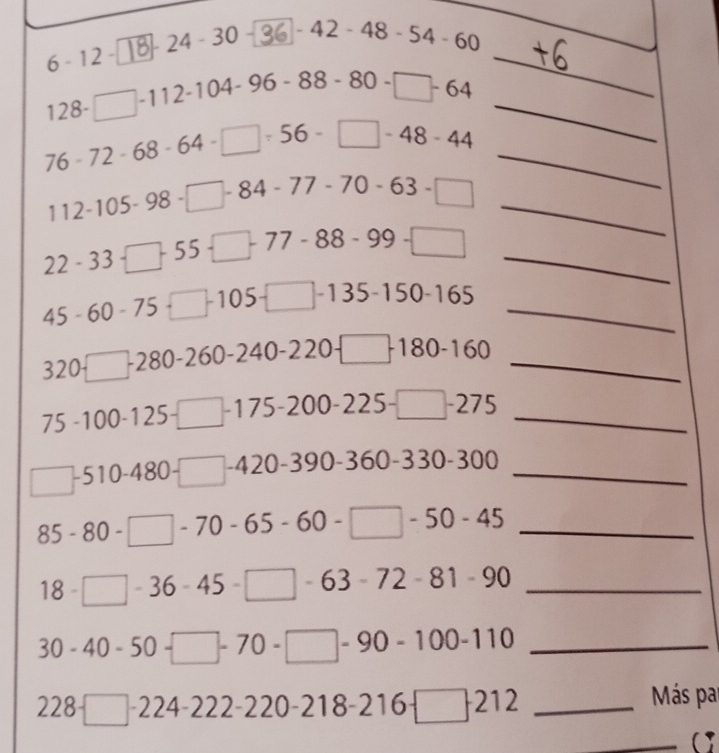 6 - 12 - 18 - 24 - 30 - 36 - 42 - 48 - 54 - 60 +6
128- -112-104- 96 - 88 - 80 - - 64
76 - 72 - 68 - 64 - - 56 - - 48 - 44
112-105- 98 - - 84 - 77 - 70 - 63 -
22 - 33 - - 55 - - 77 - 88 - 99 -
45 - 60 - 75 - -105- -135-150-165
320- -280-260-240-220- -180-160
75 -100-125- -175-200-225- -275
-510-480- -420-390-360-330-300
85 - 80 - - 70 - 65 - 60 - - 50 - 45
18 - - 36 - 45 - - 63 - 72 - 81 - 90
30 - 40 - 50 - - 70 - - 90 - 100-110
228- -224-222-220-218-216- -212
Más